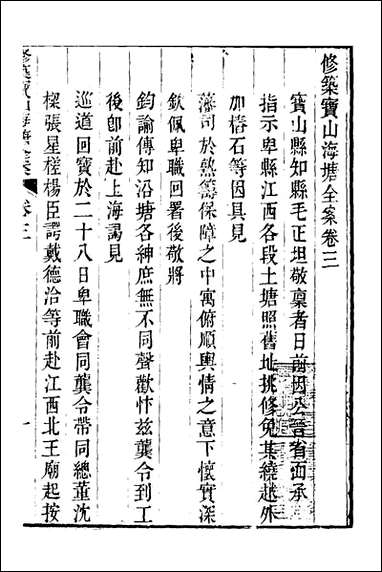 修築寶山海塘全案卷三
寶山縣知縣毛正坦敬稟者日前因公晉省面承
指示卑縣江西各段土塘照舊地挑修免其繞越外
加樁石等因具見
藩司於熟籌保障之中寓俯順輿情之意下懷實深
欽佩卑職回署後敬將
鈞諭傳知沿塘各紳庶無不同聲歡忭茲龔令到工
後卽前赴上海謁見
巡道回寶於二十八日卑職會同龔令帶同總董沈
樑張星槎楊臣諤戴德洽等前赴江西北王廟起按
卷三
一